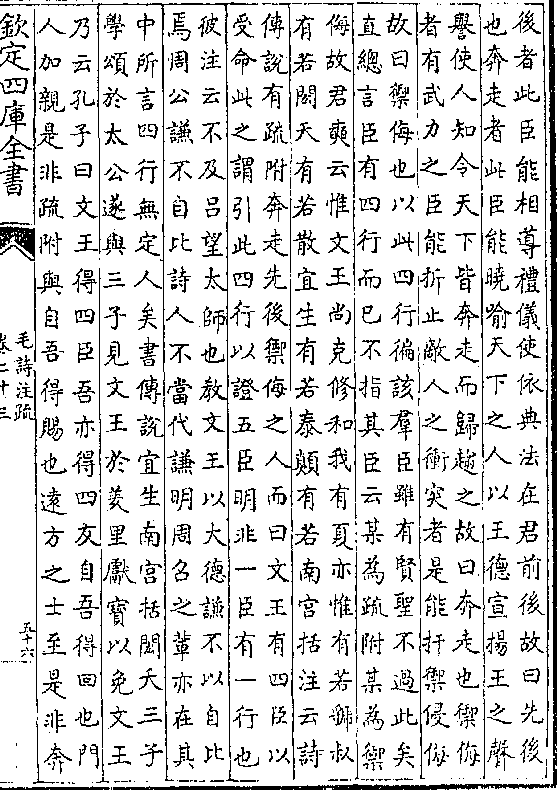 後者此臣能相導禮儀使依典法在君前後故曰先後
也奔走者此臣能曉喻天下之人以王德宣揚王之聲
譽使人知令天下皆奔走而歸趨之故曰奔走也禦侮
者有武力之臣能折止敵人之衝突者是能扞禦侵侮
故曰禦侮也以此四行徧該羣臣雖有賢聖不過此矣
直總言臣有四行而已不指其臣云某為疏附某為禦
侮故君奭云惟文王尚克修和我有夏亦惟有若虢叔
有若閎夭有若散宜生有若泰顛有若南宮括注云詩
傳說有疏附奔走先後禦侮之人而曰文王有四臣以
受命此之謂引此四行以證五臣明非一臣有一行也
彼注云不及呂望太師也教文王以大德謙不以自比
焉周公謙不自比詩人不當代謙明周召之輩亦在其
中所言四行無定人矣書傳說宜生南宮括閎夭三子
學頌於太公遂與三子見文王於羑里獻寶以免文王
乃云孔子曰文王得四臣吾亦得四友自吾得回也門
人加親是非疏附與自吾得賜也遠方之士至是非奔
欽定四庫全書
毛詩注疏
卷二十三
五十六